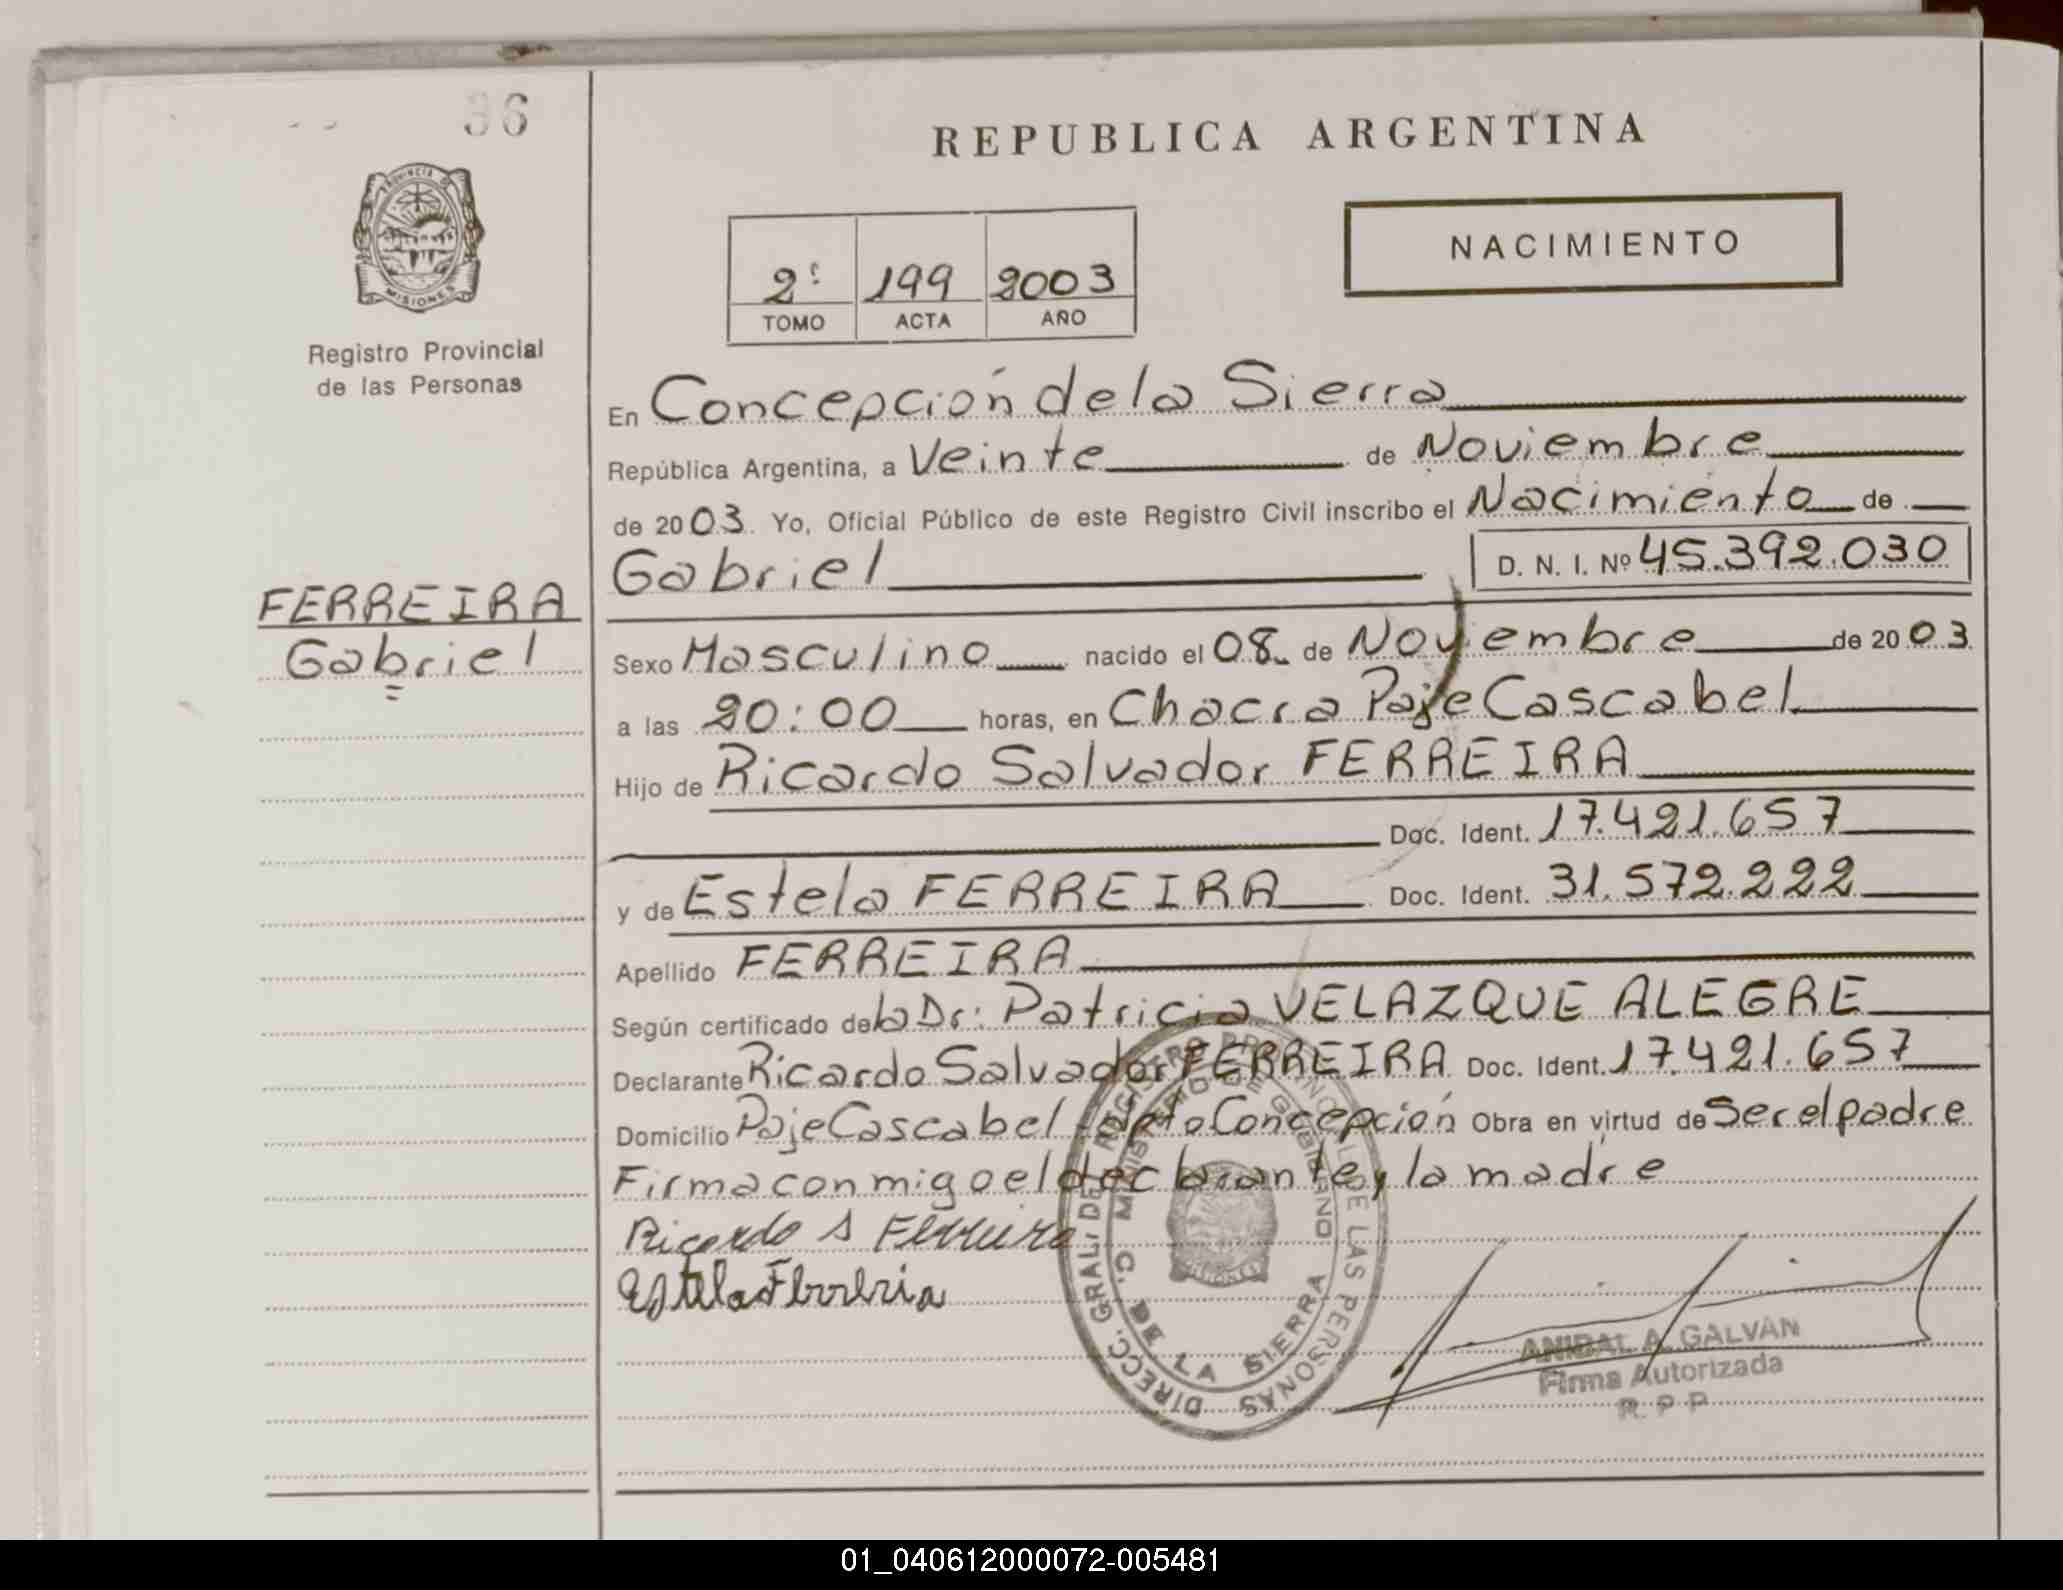 36
PROVINCIA DE
MISIONES
Registro Provincial
de las Personas
FERREIRA
Gabriel
REPUBLICA ARGENTINA
NACIMIENTO
2º 199 2003
TOMO ACTA AÑO
En Concepción de la Sierra
República Argentina, a Veinte de Noviembre
de 2003. Yo, Oficial Público de este Registro Civil inscribo el Nacimiento de
Gabriel D. N. I. Nº 45.392.030
Sexo Masculino nacido el 08 de Noviembre de 2003
a las 20:00 horas, en Chacra Paje Cascabel
Hijo de Ricardo Salvador FERREIRA
Doc. Ident. 17.421.657
y de Estela FERREIRA Doc. Ident. 31.572.222
Apellido FERREIRA
Según certificado de la Dr: Patricia VELAZQUE ALEGRE
Declarante Ricardo Salvador FERREIRA Doc. Ident. 17.421.657
Domicilio Paje Cascabel Dpto Concepción Obra en virtud de Ser el padre
Firma conmigo el declarante y la madre
Ricardo S Ferreira
Estela Ferreria
DIRECC. GRAL. DE REGISTRO PROVINCIAL DE LAS PERSONAS
MINISTERIO DE GOBIERNO
C. DE LA SIERRA
ANIBAL A. GALVAN
Firma Autorizada
R. P. P
01_040612000072-005481